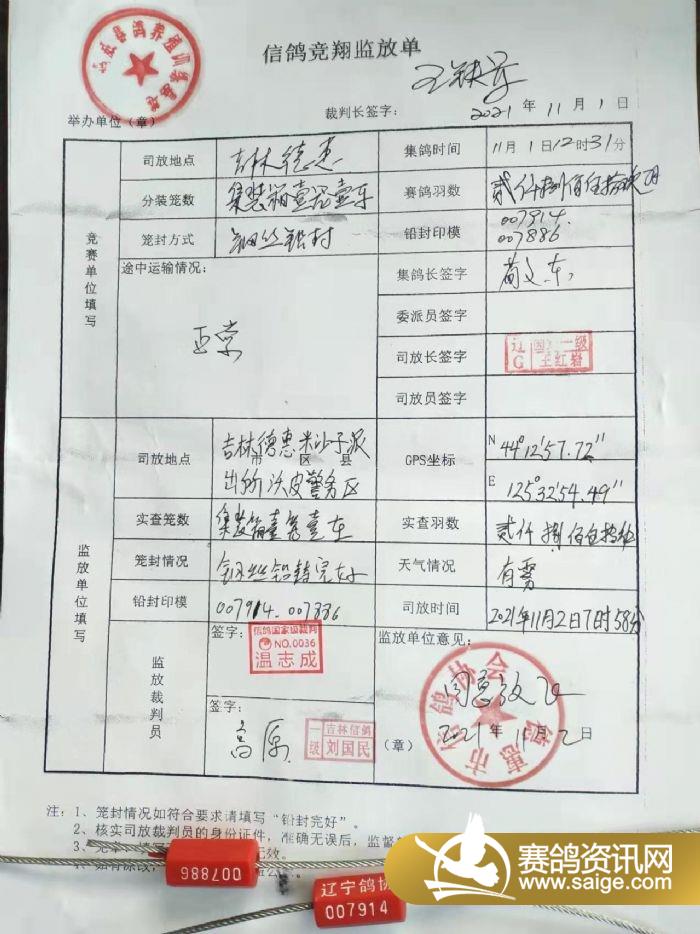 信鸽竞翔监放单
举办单位(章)
裁判长签字:
2021年11月1日
竞赛单位填写
司放地点
吉林德惠
集鸽时间
11月1日12时31分
分装笼数
集装箱壹笼壹车
赛鸽羽数
贰仟捌佰
笼封方式
钢丝铅封
铅封印模
007914.
007886
途中运输情况:
正常
集鸽长签字
委派员签字
司放长签字
辽G 国家一级 王红岩
司放员签字
监放单位填写
司放地点
吉林德惠米沙子派
市 区 县
出所 警务区
GPS坐标
N 44°12'57.72"
E 125°32'54.49"
实查笼数
集装箱壹笼壹车
实查羽数
贰仟捌佰
笼封情况
钢丝铅封完好
天气情况
有雾
铅封印模
007914.007886
司放时间
2021年11月2日7时58分
监放裁判员
签字:
信鸽国家级裁判
NO.0036
温志成
签字:
高原
一级 吉林信鸽 刘国民
监放单位意见:
同意放飞
(章)
2021年11月2日
德惠市信鸽协会
注:1、笼封情况如符合要求请填写“铅封完好”。
2、核实司放裁判员的身份证件,准确无误后,监督
007886
辽宁鸽协
007914
赛鸽资讯网
www.saige.com